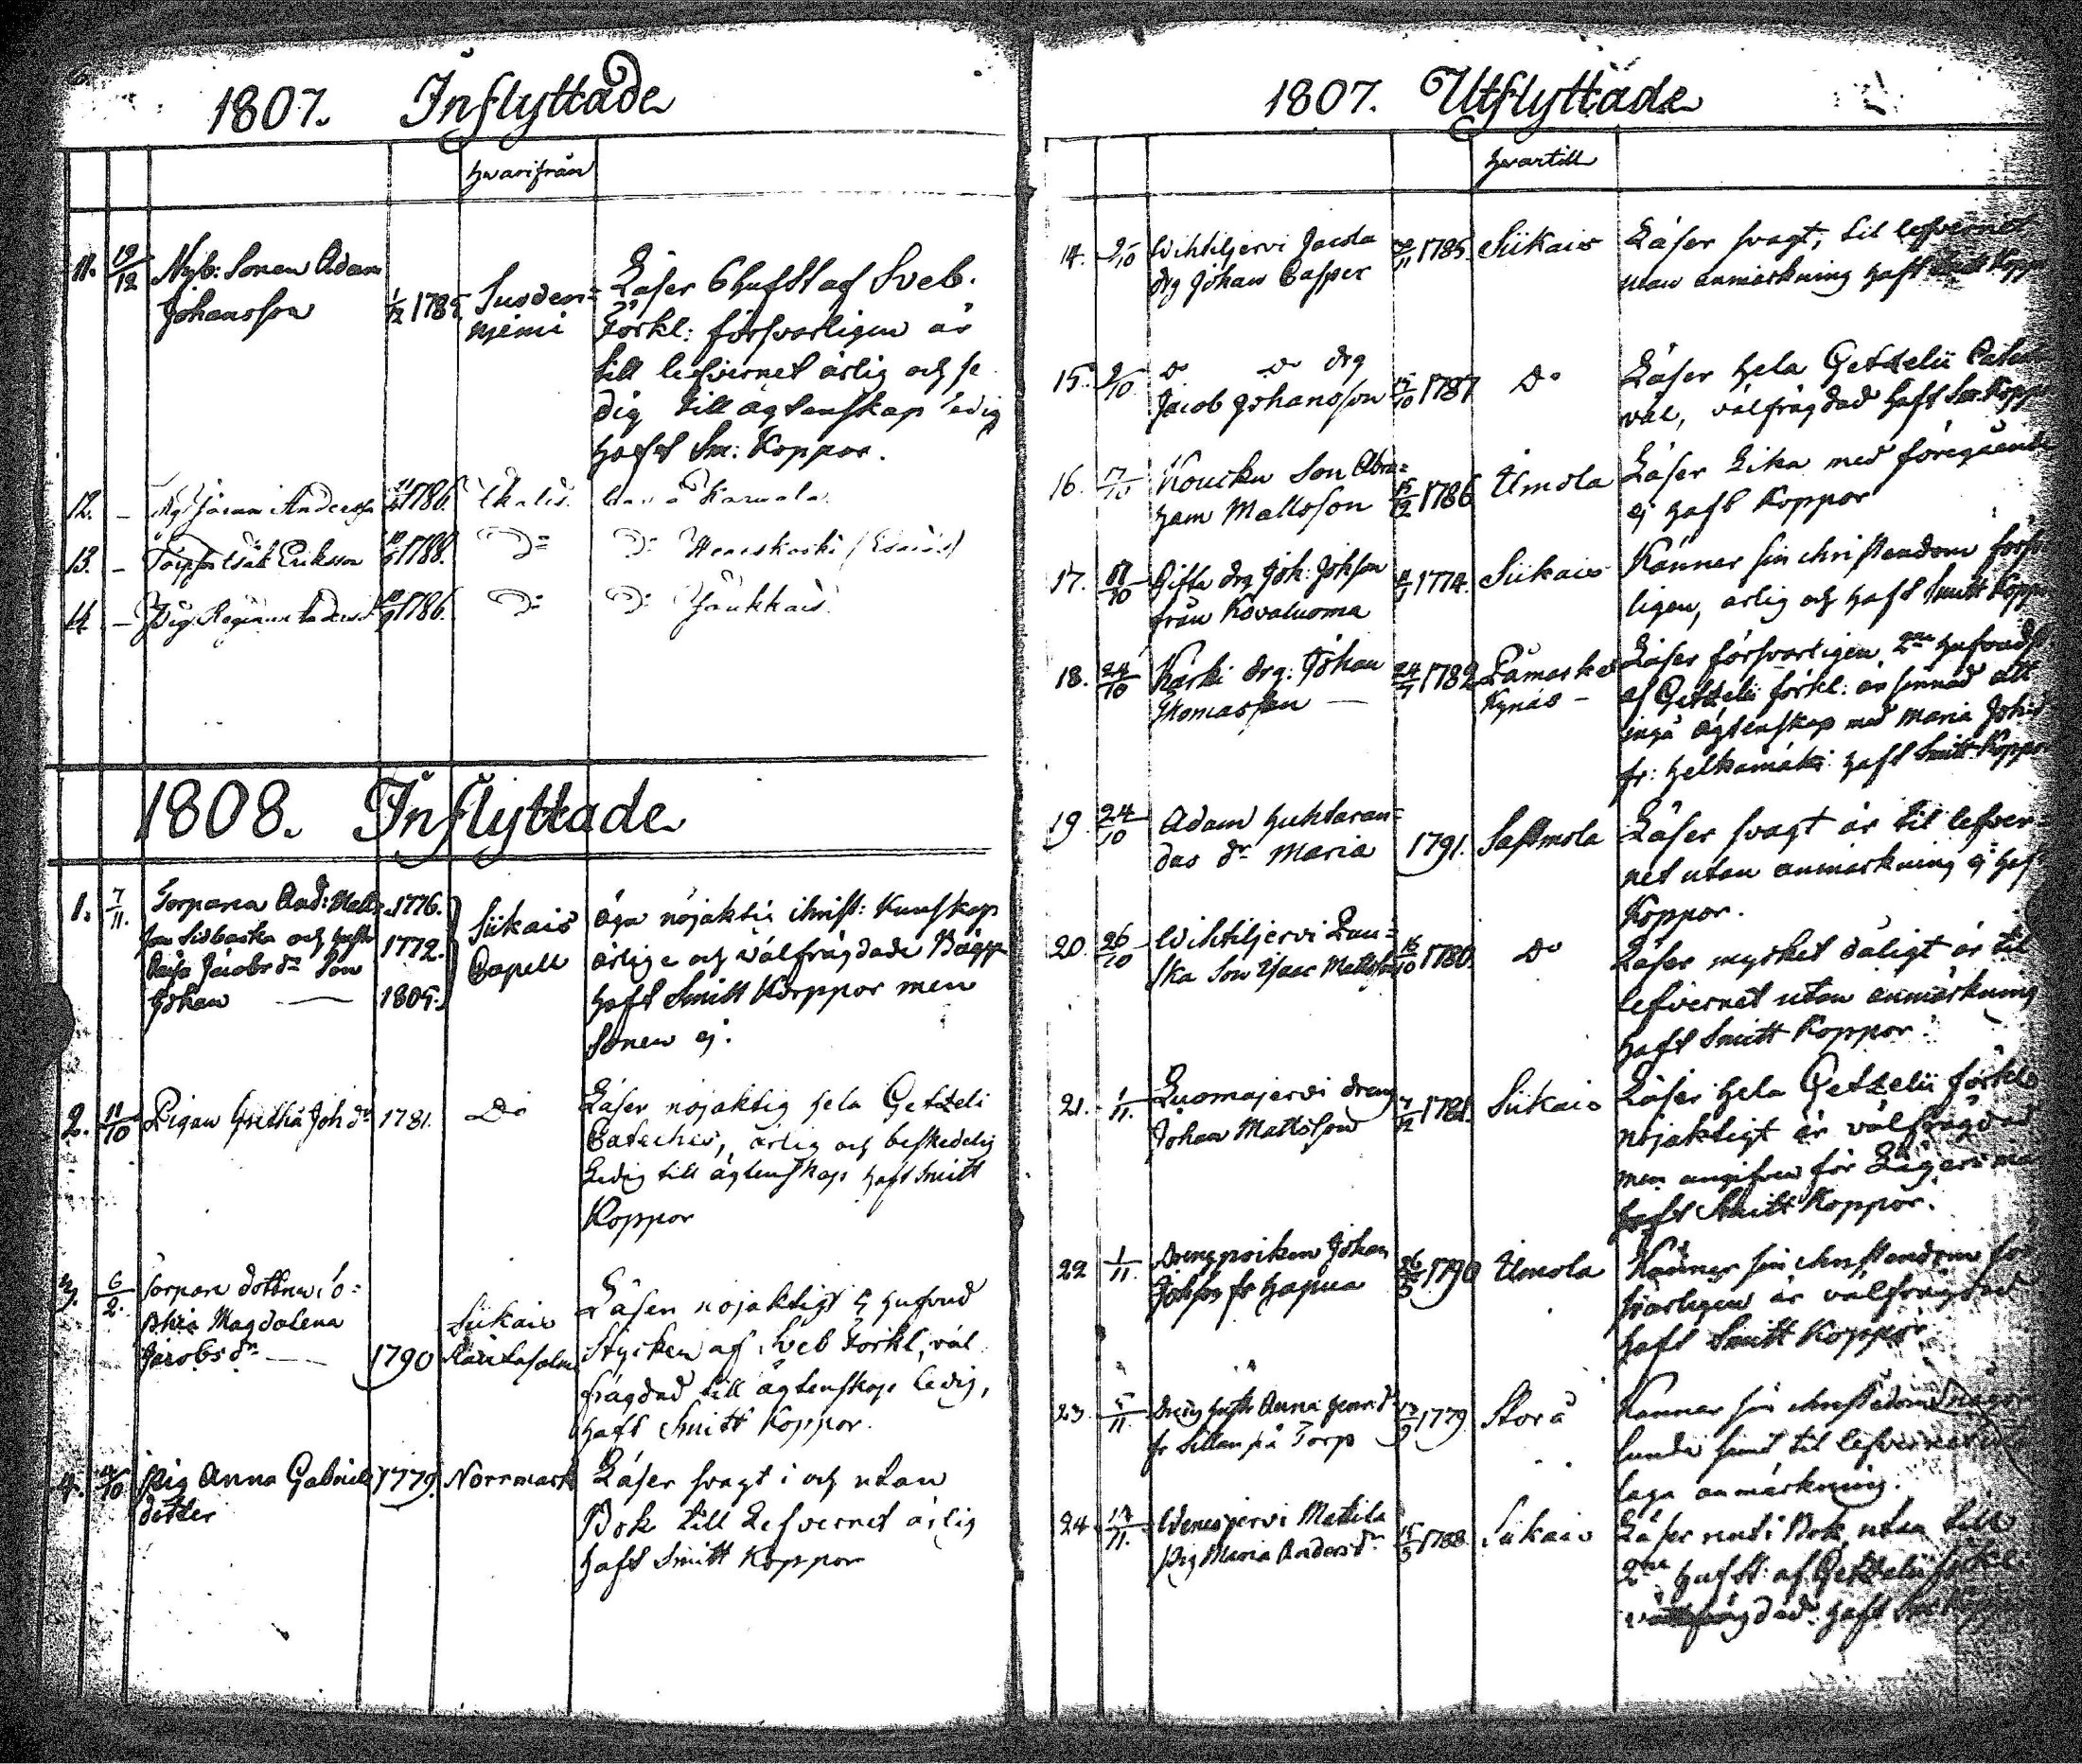 1807. Inflyttade
hvarifrån
11. 19/12 Nyb: Sonen Adam
Johansson
1/12 1785.
Suoden=
njemi
Läser 6 hufst af Sveb.
Förkl: försvarligen är
till lefvernet ärlig och se
dig till ägtenskap ledig
haft Sm: Koppor.
12. — Anderss 1786. Ikalis.
13. — Isak Eriksson 1788. D:o D:o
14. — Pig. Regina 1786. D:o D:o
1808. Inflyttade
1. 7/11. Torparen And: Matts. 1776.
och hustr
Caisa Jacobs dr Son 1772.
Johan — 1805.
Siikais
Capell
äga nöjaktig christ: Kunskap
ärlige och välfrägdade Bägge
haft Smitt Koppor men
Sonen ej.
2. 11/10 Pigan Gretha Joh dr 1781. Do
Läser nöjaktig hela Getzeli
Cateches, ärlig och beskedelig
Ledig till ägtenskap haft Smitt
Koppor
3. 6/2. Torpare dottren So=
phia Magdalena
Jacobs dr — 1790
Siikais
Läser nöjaktigt 4 hufvud
Stycken af Sveb Förkl, väl
frägdad till ägtenskap ledig,
haft Smitt Koppor.
4. /10 Pig Anna Gabriels 1779. Norrmark
dotter
Läser svagt i och utan
Bok till Lefvernet ärlig
haft Smitt Koppor
1807. Utflyttade
hvartill
14. 2/10 Wihtiljervi Jacola
drg Johan Casper
/11 1785. Siikais
Läser svagt, til lefvernet
utan anmärkning haft Smitt Koppor
15. 2/10 Do Do drg
Jacob Johansson /10 1787 Do
Läser hela Getzelii
väl, välfrägdad haft Sm. Koppor
16. 7/10 Koucku Son Abra=
ham Mattsson 15/12 1786 Umola
Läser Lika med föregående
ej haft Koppor
17. /10 Gifta drg Joh: Johsson
från Kovaluoma
1774. Siikais
Känner sin christendom försvar
ligen, ärlig och haft Smitt Koppor
18. 24/10 Karhi drg: Johan
Thomasson —
24/7 1782 Påmark
Kynäs —
Läser försvarligen 2ne hufvudst
af Getzelii förkl: är sinnad att
ingå ägtenskap med Maria Joh
fr: Helkamäki haft Smitt Koppor
19. 24/10 Adam Huhtaran=
das dr Maria 1791. Sastmola
Läser svagt är til lefver=
net utan anmärkning ej haft
Koppor.
20. 26/10 Wihtiljervi Lau=
ska Son Isaac Mattsson /10 1780. Do
Läser mycket dåligt är til
lefvernet utan anmärkning
haft Smitt Koppor.
21. 1/11. Luomajervi dreng
Johan Mattsson
/12 1781. Siikais
Läser hela Getzelii förkl
nöjaktigt är välfrägdad
men angifven för
haft Smitt Koppor.
22 1/11. Drengpoiken Johan
Johsson fr Hapua
26/5 1790 Umola
Känner sin christendom för
svarligen är välfrägdad
haft Smitt Koppor
23. 5/11. Dreng hustr Anna Henr. dr
fr Sillanpä Torp
1779. Storå
Känner sin christendom någor
lunda samt til lefvernet
laga anmärkning.
24. /11. Wenesjervi Mattila
Pig Maria Anders dr
15/5 1788 Siikais
Läser rent i Bok, utan till
2ne hufst: af Getzelii förkl:
välfrägdad haft Sm Koppor